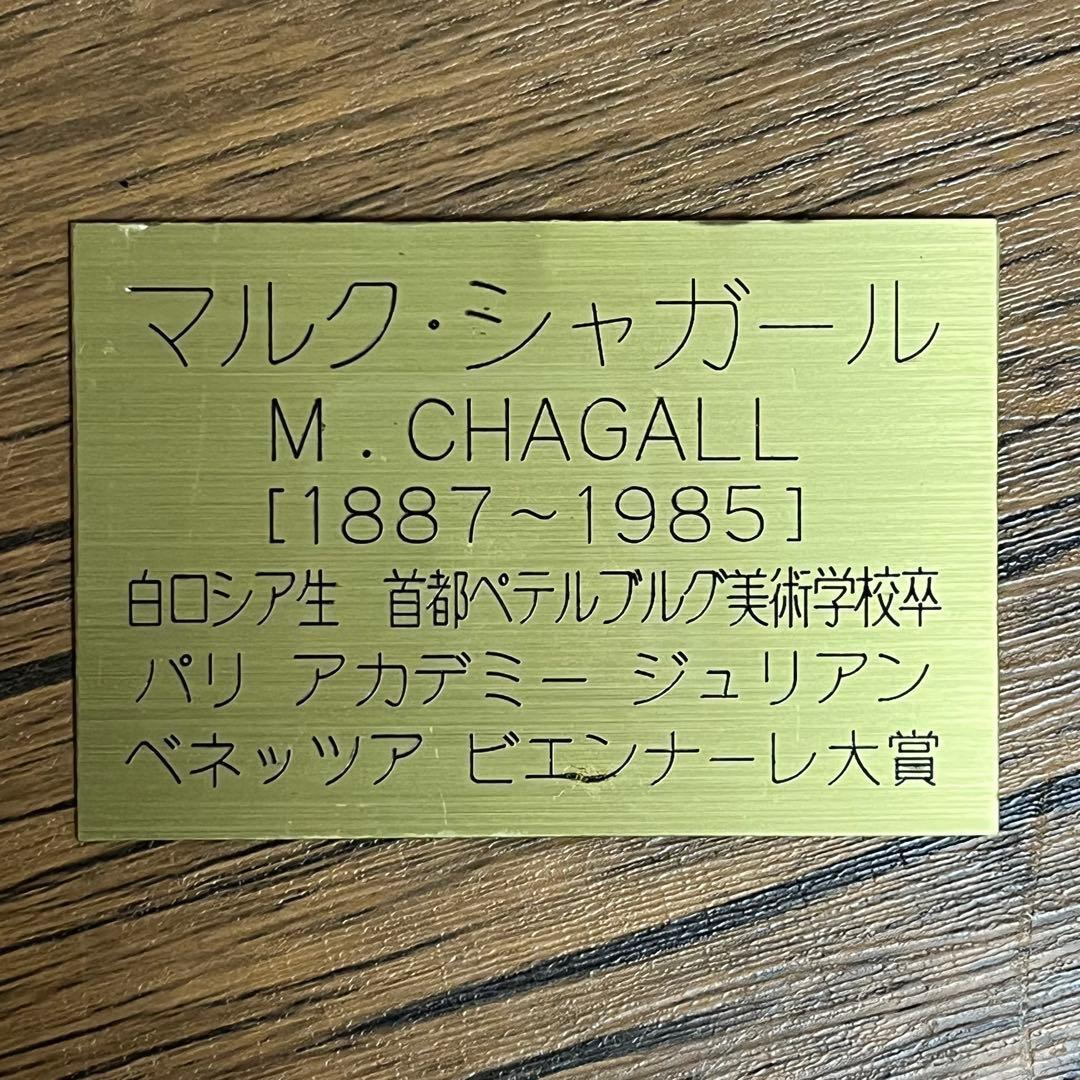 マルク・シャガール
M . CHAGALL
[1887~1985]
白ロシア生 首都ペテルブルグ美術学校卒
パリ アカデミー ジュリアン
ベネッツア ビエンナーレ大賞